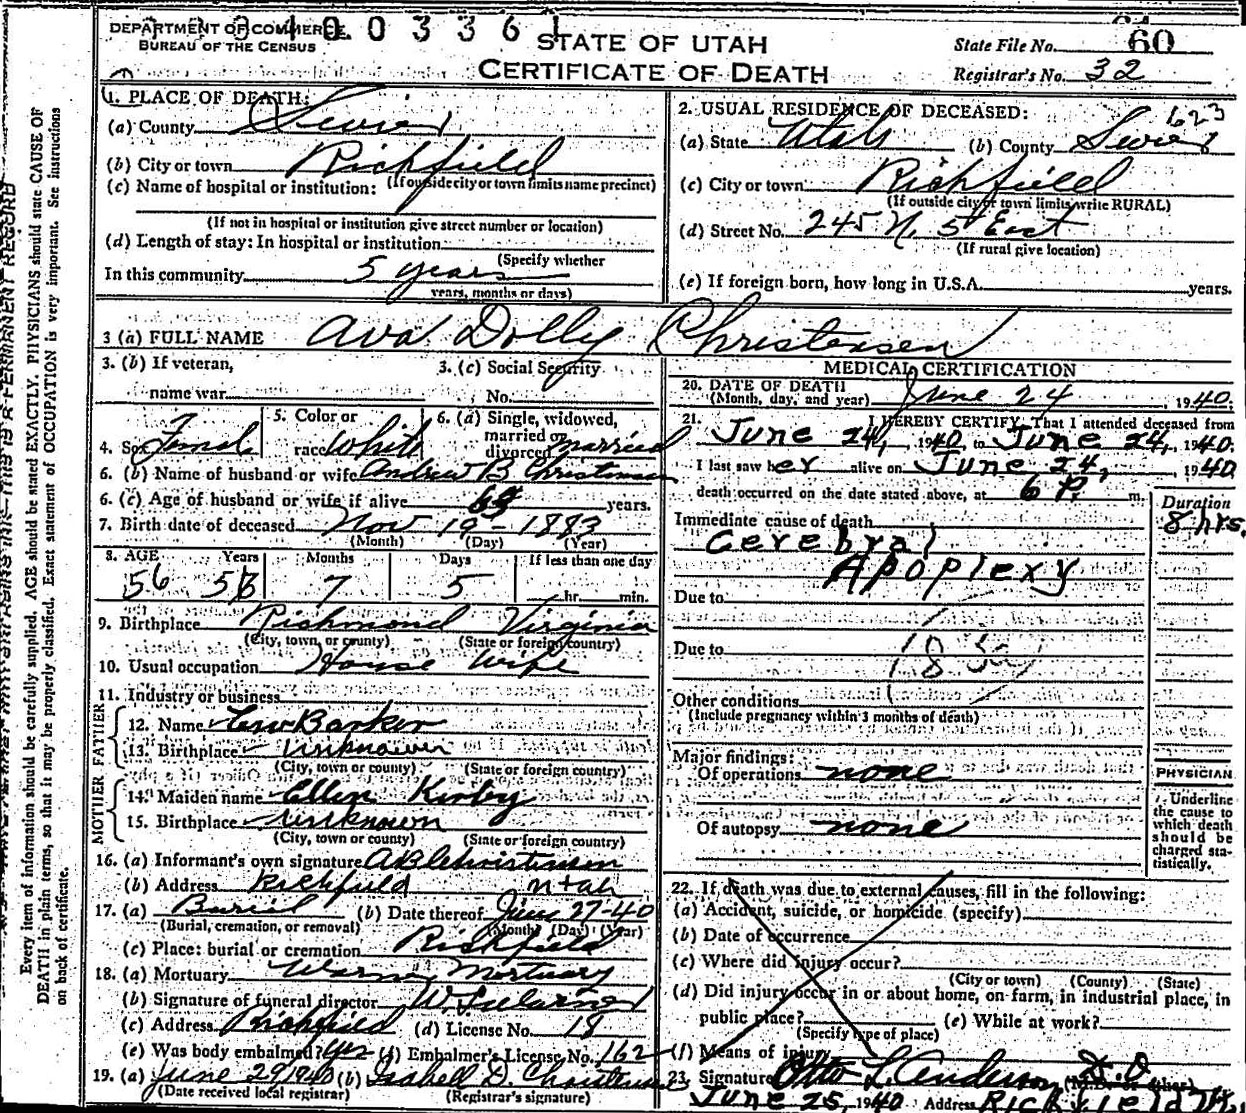 DEPARTMENT OF COMMERCE
BUREAU OF THE CENSUS
400 3361
STATE OF UTAH
CERTIFICATE OF DEATH
State File No. 60
Registrar's No. 32
1. PLACE OF DEATH:
(a) County Sevier
(b) City or town Richfield
(If outside city or town limits name precinct)
(c) Name of hospital or institution:
(If not in hospital or institution give street number or location)
(d) Length of stay: In hospital or institution
(Specify whether
In this community 5 years
years, months or days)
2. USUAL RESIDENCE OF DECEASED: 623
(a) State Utah (b) County Sevier
(c) City or town Richfield
(If outside city or town limits write RURAL)
(d) Street No. 245 N. 5 East
(If rural give location)
(e) If foreign born, how long in U.S.A. years.
3 (a) FULL NAME Ava Dolly Christensen
3. (b) If veteran,
name war
3. (c) Social Security
No.
4. Sex Female
5. Color or
race White
6. (a) Single, widowed,
married or
divorced married
6. (b) Name of husband or wife Andrew B Christensen
6. (c) Age of husband or wife if alive years.
7. Birth date of deceased Nov 19 - 1883
(Month) (Day) (Year)
8. AGE Years Months Days If less than one day
56 7 5 hr. min.
9. Birthplace Richmond Virginia
(City, town, or county) (State or foreign country)
10. Usual occupation House Wife
11. Industry or business
FATHER
12. Name Barker
13. Birthplace unknown
(City, town or county) (State or foreign country)
MOTHER
14. Maiden name Ellen Kirby
15. Birthplace unknown
(City, town or county) (State or foreign country)
16. (a) Informant's own signature A B Christensen
(b) Address Richfield Utah
17. (a) Burial (b) Date thereof June 27-40
(Burial, cremation, or removal) (Month) (Day) (Year)
(c) Place: burial or cremation Richfield
18. (a) Mortuary Mortuary
(b) Signature of funeral director
(c) Address Richfield (d) License No. 18
(e) Was body embalmed? Yes (f) Embalmer's License No. 162
19. (a) June 29 1940 (b) Isabell D. Christensen
(Date received local registrar) (Registrar's signature)
MEDICAL CERTIFICATION
20. DATE OF DEATH
(Month, day, and year) June 24, 1940.
21. I HEREBY CERTIFY, That I attended deceased from
June 24, 1940 to June 24, 1940.
I last saw her alive on June 24, 1940
death occurred on the date stated above, at 6 P. m.
Duration
8 hrs.
Immediate cause of death
Cerebral
Apoplexy
Due to
Due to
Other conditions
(Include pregnancy within 3 months of death)
Major findings:
Of operations none
Of autopsy none
PHYSICIAN
Underline
the cause to
which death
should be
charged sta-
tistically.
22. If death was due to external causes, fill in the following:
(a) Accident, suicide, or homicide (specify)
(b) Date of occurrence
(c) Where did injury occur?
(City or town) (County) (State)
(d) Did injury occur in or about home, on farm, in industrial place, in
public place? (e) While at work?
(Specify type of place)
(f) Means of injury
23. Signature Otto L. Anderson D.O.
(M.D. or other)
June 25, 1940 Address Richfield Ut.
Every item of information should be carefully supplied. AGE should be stated EXACTLY. PHYSICIANS should state CAUSE OF
DEATH in plain terms, so that it may be properly classified. Exact statement of OCCUPATION is very important. See instructions
on back of certificate.